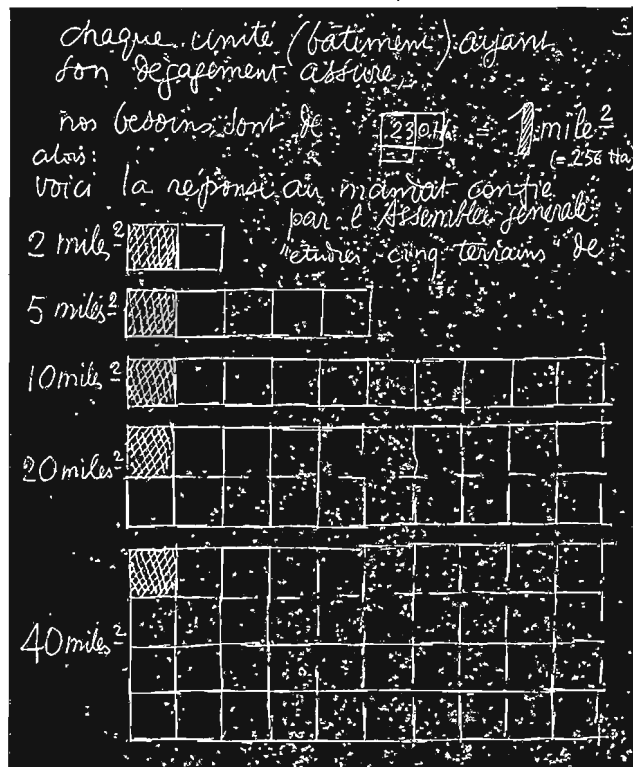 chaque unité (bâtiment) ayant
son dégagement assuré,
nos besoins sont de 230 Ha = 1 mile²
alors: (= 256 Ha)
voici la réponse au mandat confié
par l'Assemblée générale
"étudier cinq terrains" de
2 miles²
5 miles²
10 miles²
20 miles²
40 miles²